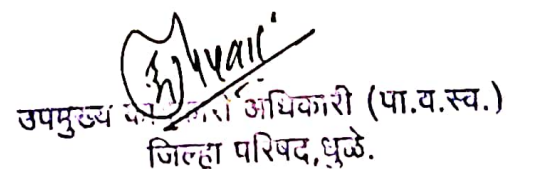 उपमुख्य अधिकारी (पा.व.स्व.)
जिल्हा परिषद,धुळे.